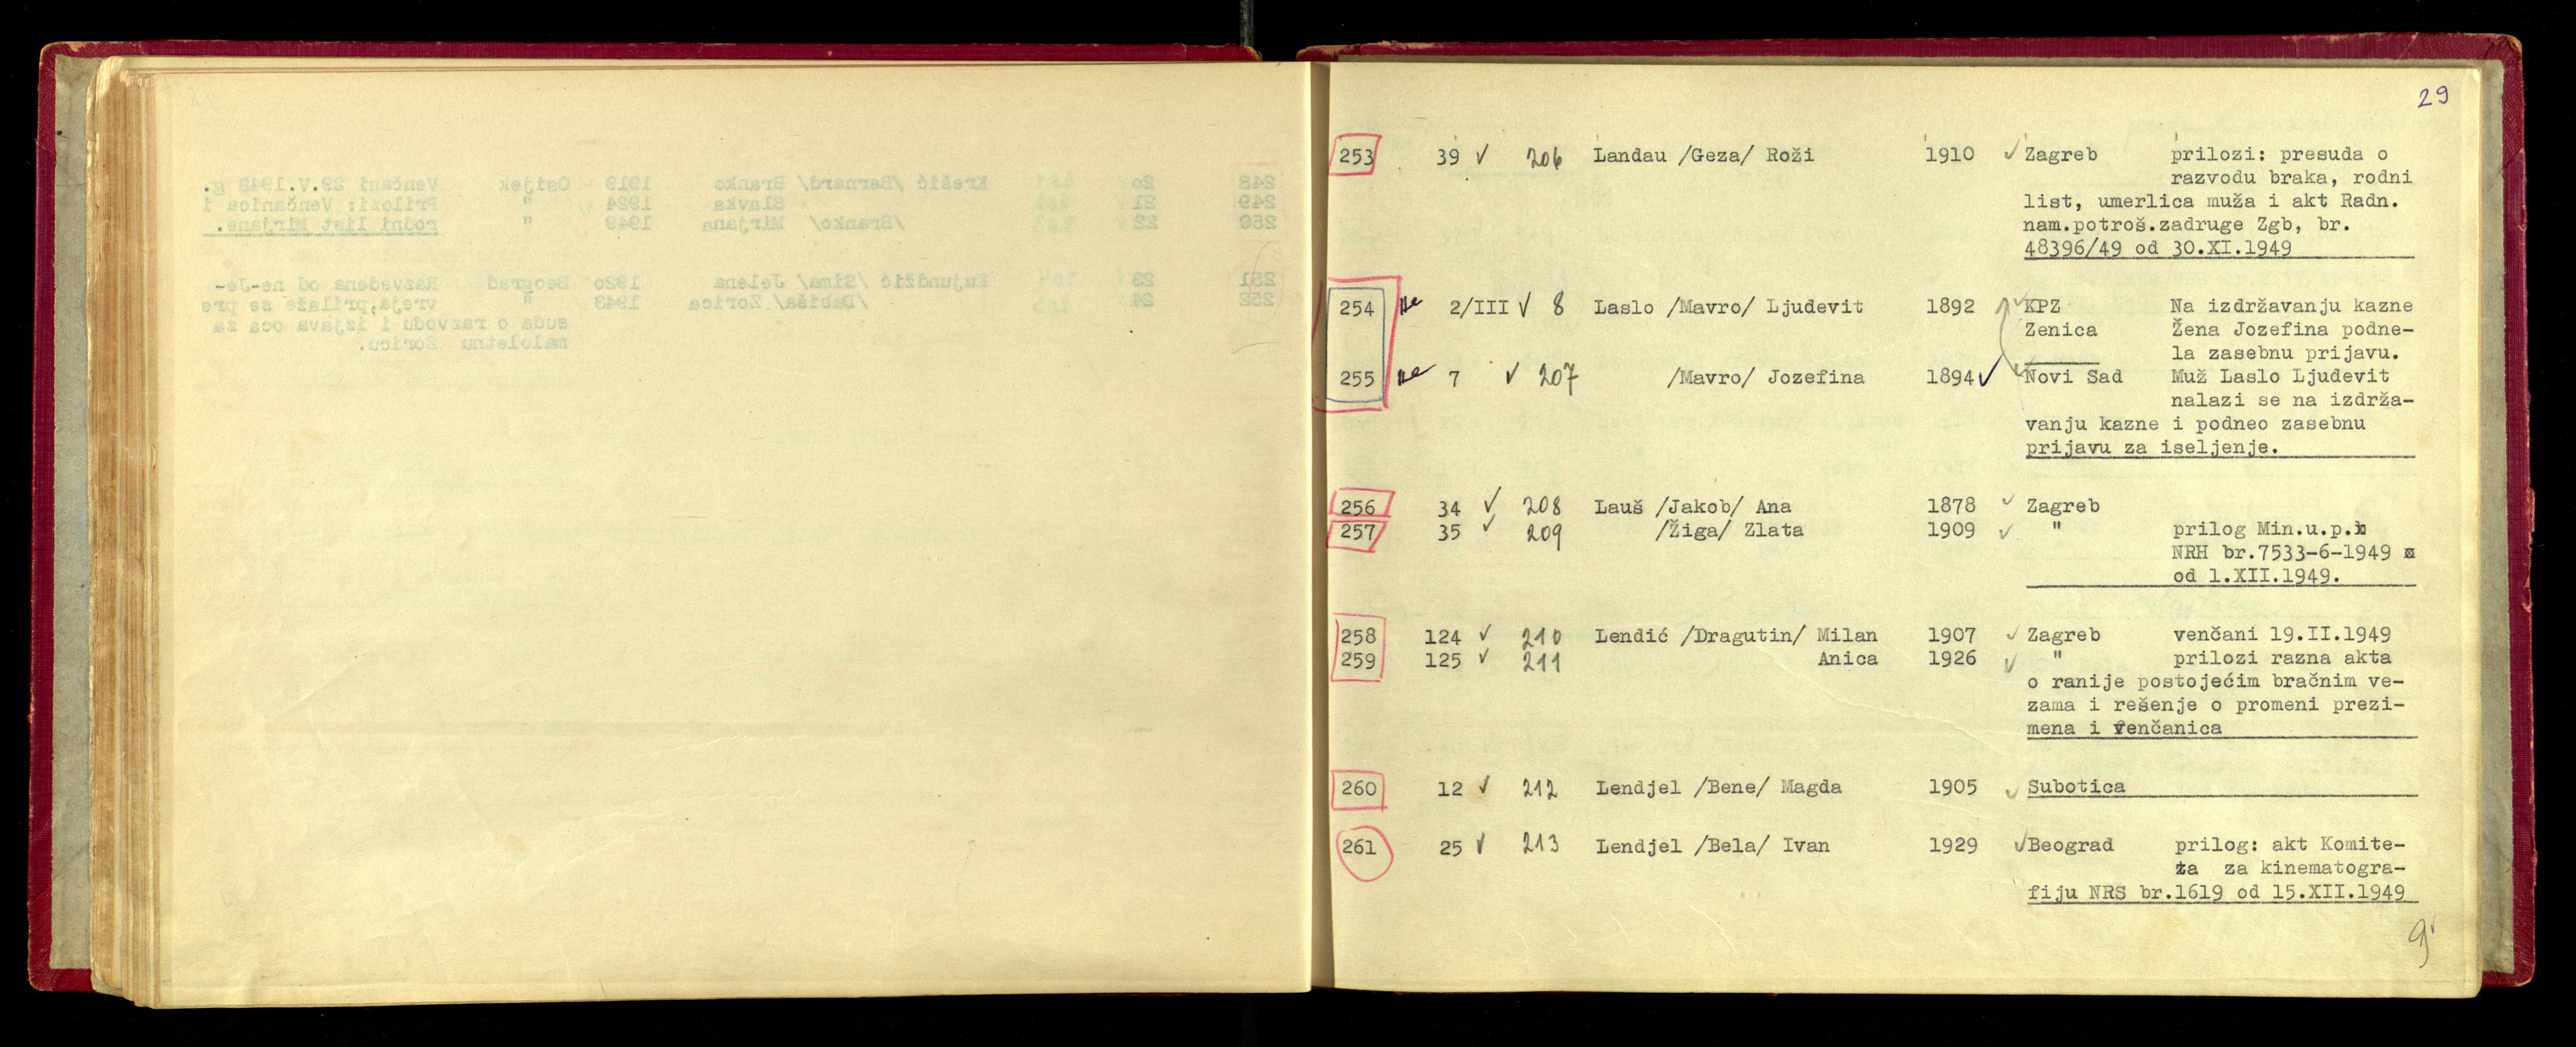 29
253 39 ✓ 206 Landau /Geza/ Roži 1910 ✓ Zagreb prilozi: presuda o
razvodu braka, rodni
list, umerlica muža i akt Radn.
nam.potroš.zadruge Zgb, br.
48396/49 od 30.XI.1949
254 ne 2/III ✓ 8 Laslo /Mavro/ Ljudevit 1892 ✓ KPZ Na izdržavanju kazne
Zenica Žena Jozefina podne-
la zasebnu prijavu.
255 ne 7 ✓ 207 /Mavro/ Jozefina 1894 ✓ Novi Sad Muž Laslo Ljudevit
nalazi se na izdrža-
vanju kazne i podneo zasebnu
prijavu za iseljenje.
256 34 ✓ 208 Lauš /Jakob/ Ana 1878 ✓ Zagreb
257 35 ✓ 209 /Žiga/ Zlata 1909 ✓ " prilog Min.u.p.
NRH br.7533-6-1949
od 1.XII.1949.
258 124 ✓ 210 Lendić /Dragutin/ Milan 1907 ✓ Zagreb venčani 19.II.1949
259 125 ✓ 211 Anica 1926 ✓ " prilozi razna akta
o ranije postojećim bračnim ve-
zama i rešenje o promeni prezi-
mena i venčanica
260 12 ✓ 212 Lendjel /Bene/ Magda 1905 ✓ Subotica
261 25 ✓ 213 Lendjel /Bela/ Ivan 1929 ✓ Beograd prilog: akt Komite-
ta za kinematogra-
fiju NRS br.1619 od 15.XII.1949